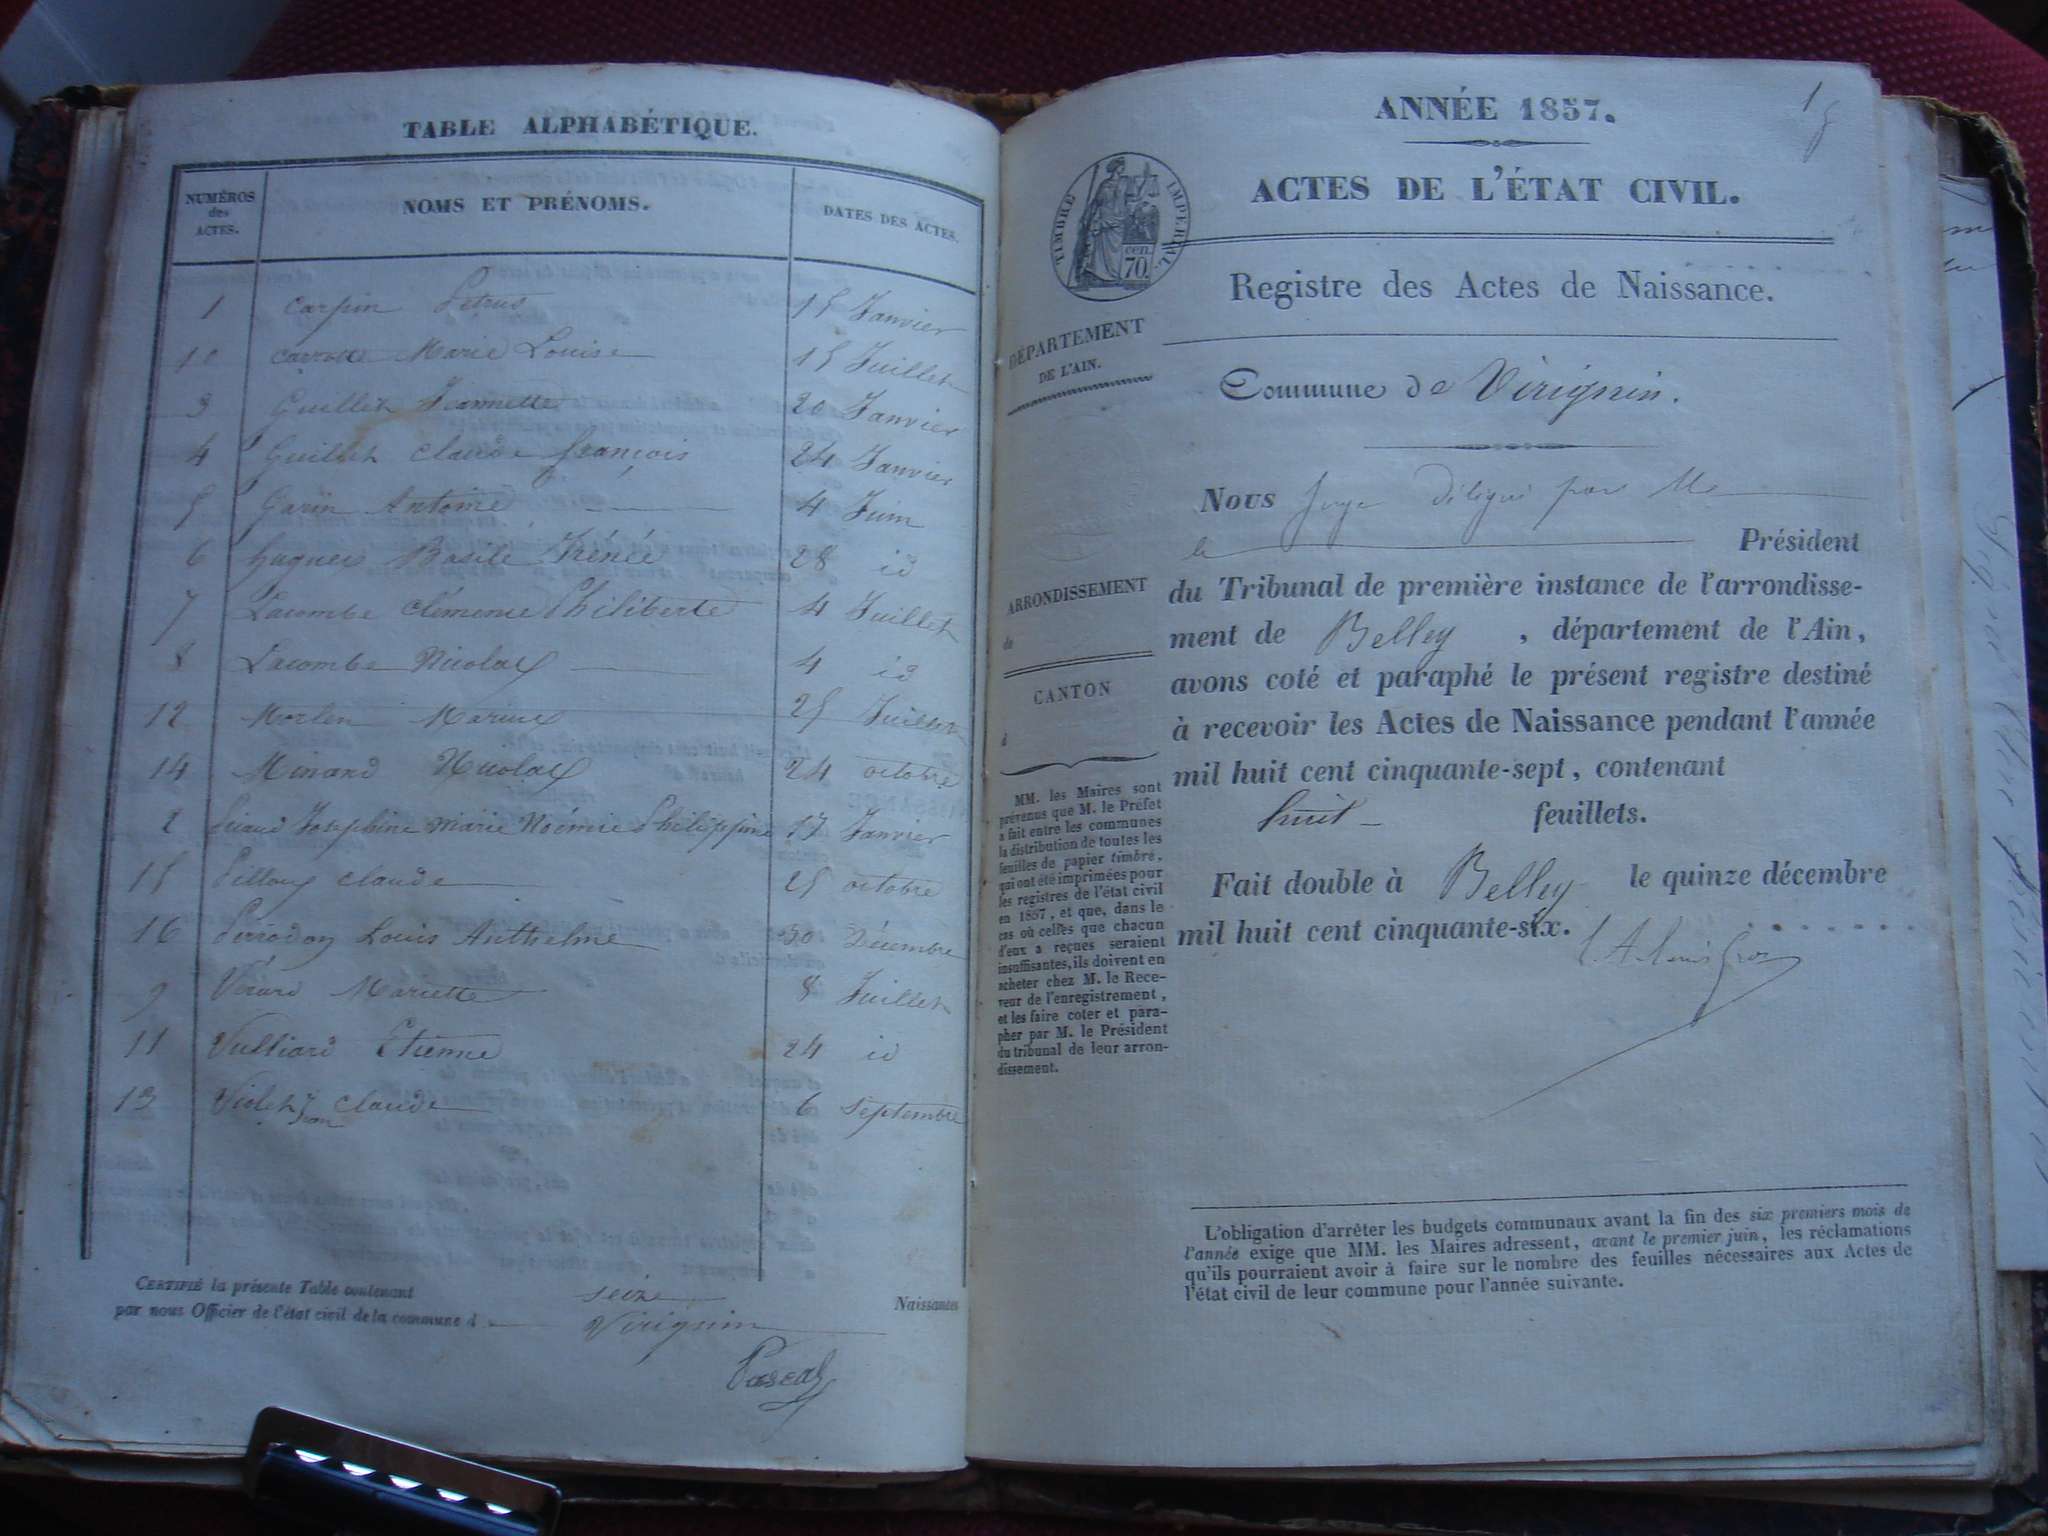 TABLE ALPHABÉTIQUE.
NUMÉROS des ACTES.
NOMS ET PRÉNOMS.
DATES DES ACTES.
1 Carpin Petrus 15 Janvier
10 Marie Louise 15 Juillet
3 Guillet Jeannette 20 Janvier
4 Guillet Claude françois 24 Janvier
5 Garin Antoine 4 Juin
6 hugues Basile Irénée 28 id
7 Lacombe Clémence Philiberte 4 Juillet
8 Lacombe Nicolas 4 id
12 Marius 25 Juillet
14 Minard Nicolas 24 octobre
2 Josephine Marie Noémie Philippine 17 Janvier
15 Pilloux Claude 25 octobre
16 Louis Anthelme 30 Décembre
9 Mariette 8 Juillet
11 Vulliard Etienne 24 id
13 Violet Jean Claude 6 septembre
CERTIFIÉ la présente Table contenant seize Naissances
par nous Officier de l'état civil de la commune d Virignin
Pascal
1
ANNÉE 1857.
ACTES DE L'ÉTAT CIVIL.
TIMBRE IMPERIAL.
cen. 70.
Registre des Actes de Naissance.
DÉPARTEMENT
DE L'AIN.
Commune de Virignin.
Nous Juge délégué par Mr
le Président
du Tribunal de première instance de l'arrondisse-
ment de Belley, département de l'Ain,
avons coté et paraphé le présent registre destiné
à recevoir les Actes de Naissance pendant l'année
mil huit cent cinquante-sept, contenant
huit feuillets.
Fait double à Belley le quinze décembre
mil huit cent cinquante-six.
ARRONDISSEMENT
de
CANTON
à
MM. les Maires sont
prévenus que M. le Préfet
a fait entre les communes
la distribution de toutes les
feuilles de papier timbré,
qui ont été imprimées pour
les registres de l'état civil
en 1857, et que, dans le
cas où celles que chacun
d'eux a reçues seraient
insuffisantes, ils doivent en
acheter chez M. le Rece-
veur de l'enregistrement,
et les faire coter et para-
pher par M. le Président
du tribunal de leur arron-
dissement.
L'obligation d'arrêter les budgets communaux avant la fin des six premiers mois de
l'année exige que MM. les Maires adressent, avant le premier juin, les réclamations
qu'ils pourraient avoir à faire sur le nombre des feuilles nécessaires aux Actes de
l'état civil de leur commune pour l'année suivante.